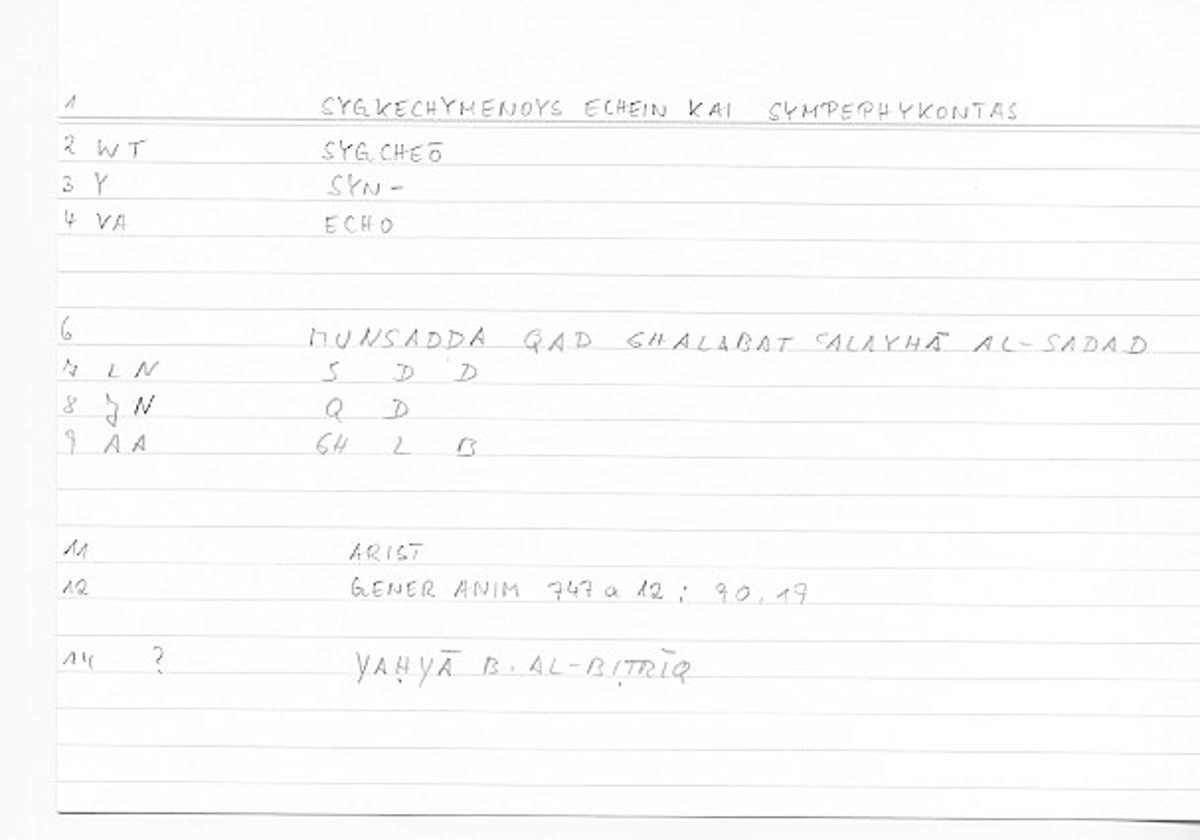 1 SYGKECHYMENOYS ECHEIN KAI SYMPEPHYKONTAS
2 WT SYGCHEŌ
3 Y SYN-
4 VA ECHO
6 MUNSADDA QAD GHALABAT ʿALAYHĀ AL-SADAD
7 LN S D D
8 JN Q D
9 AA GH L B
11 ARIST
12 GENER ANIM 747 a 12 ; 90.19
14 ? YAḤYĀ B. AL-BIṬRĪQ